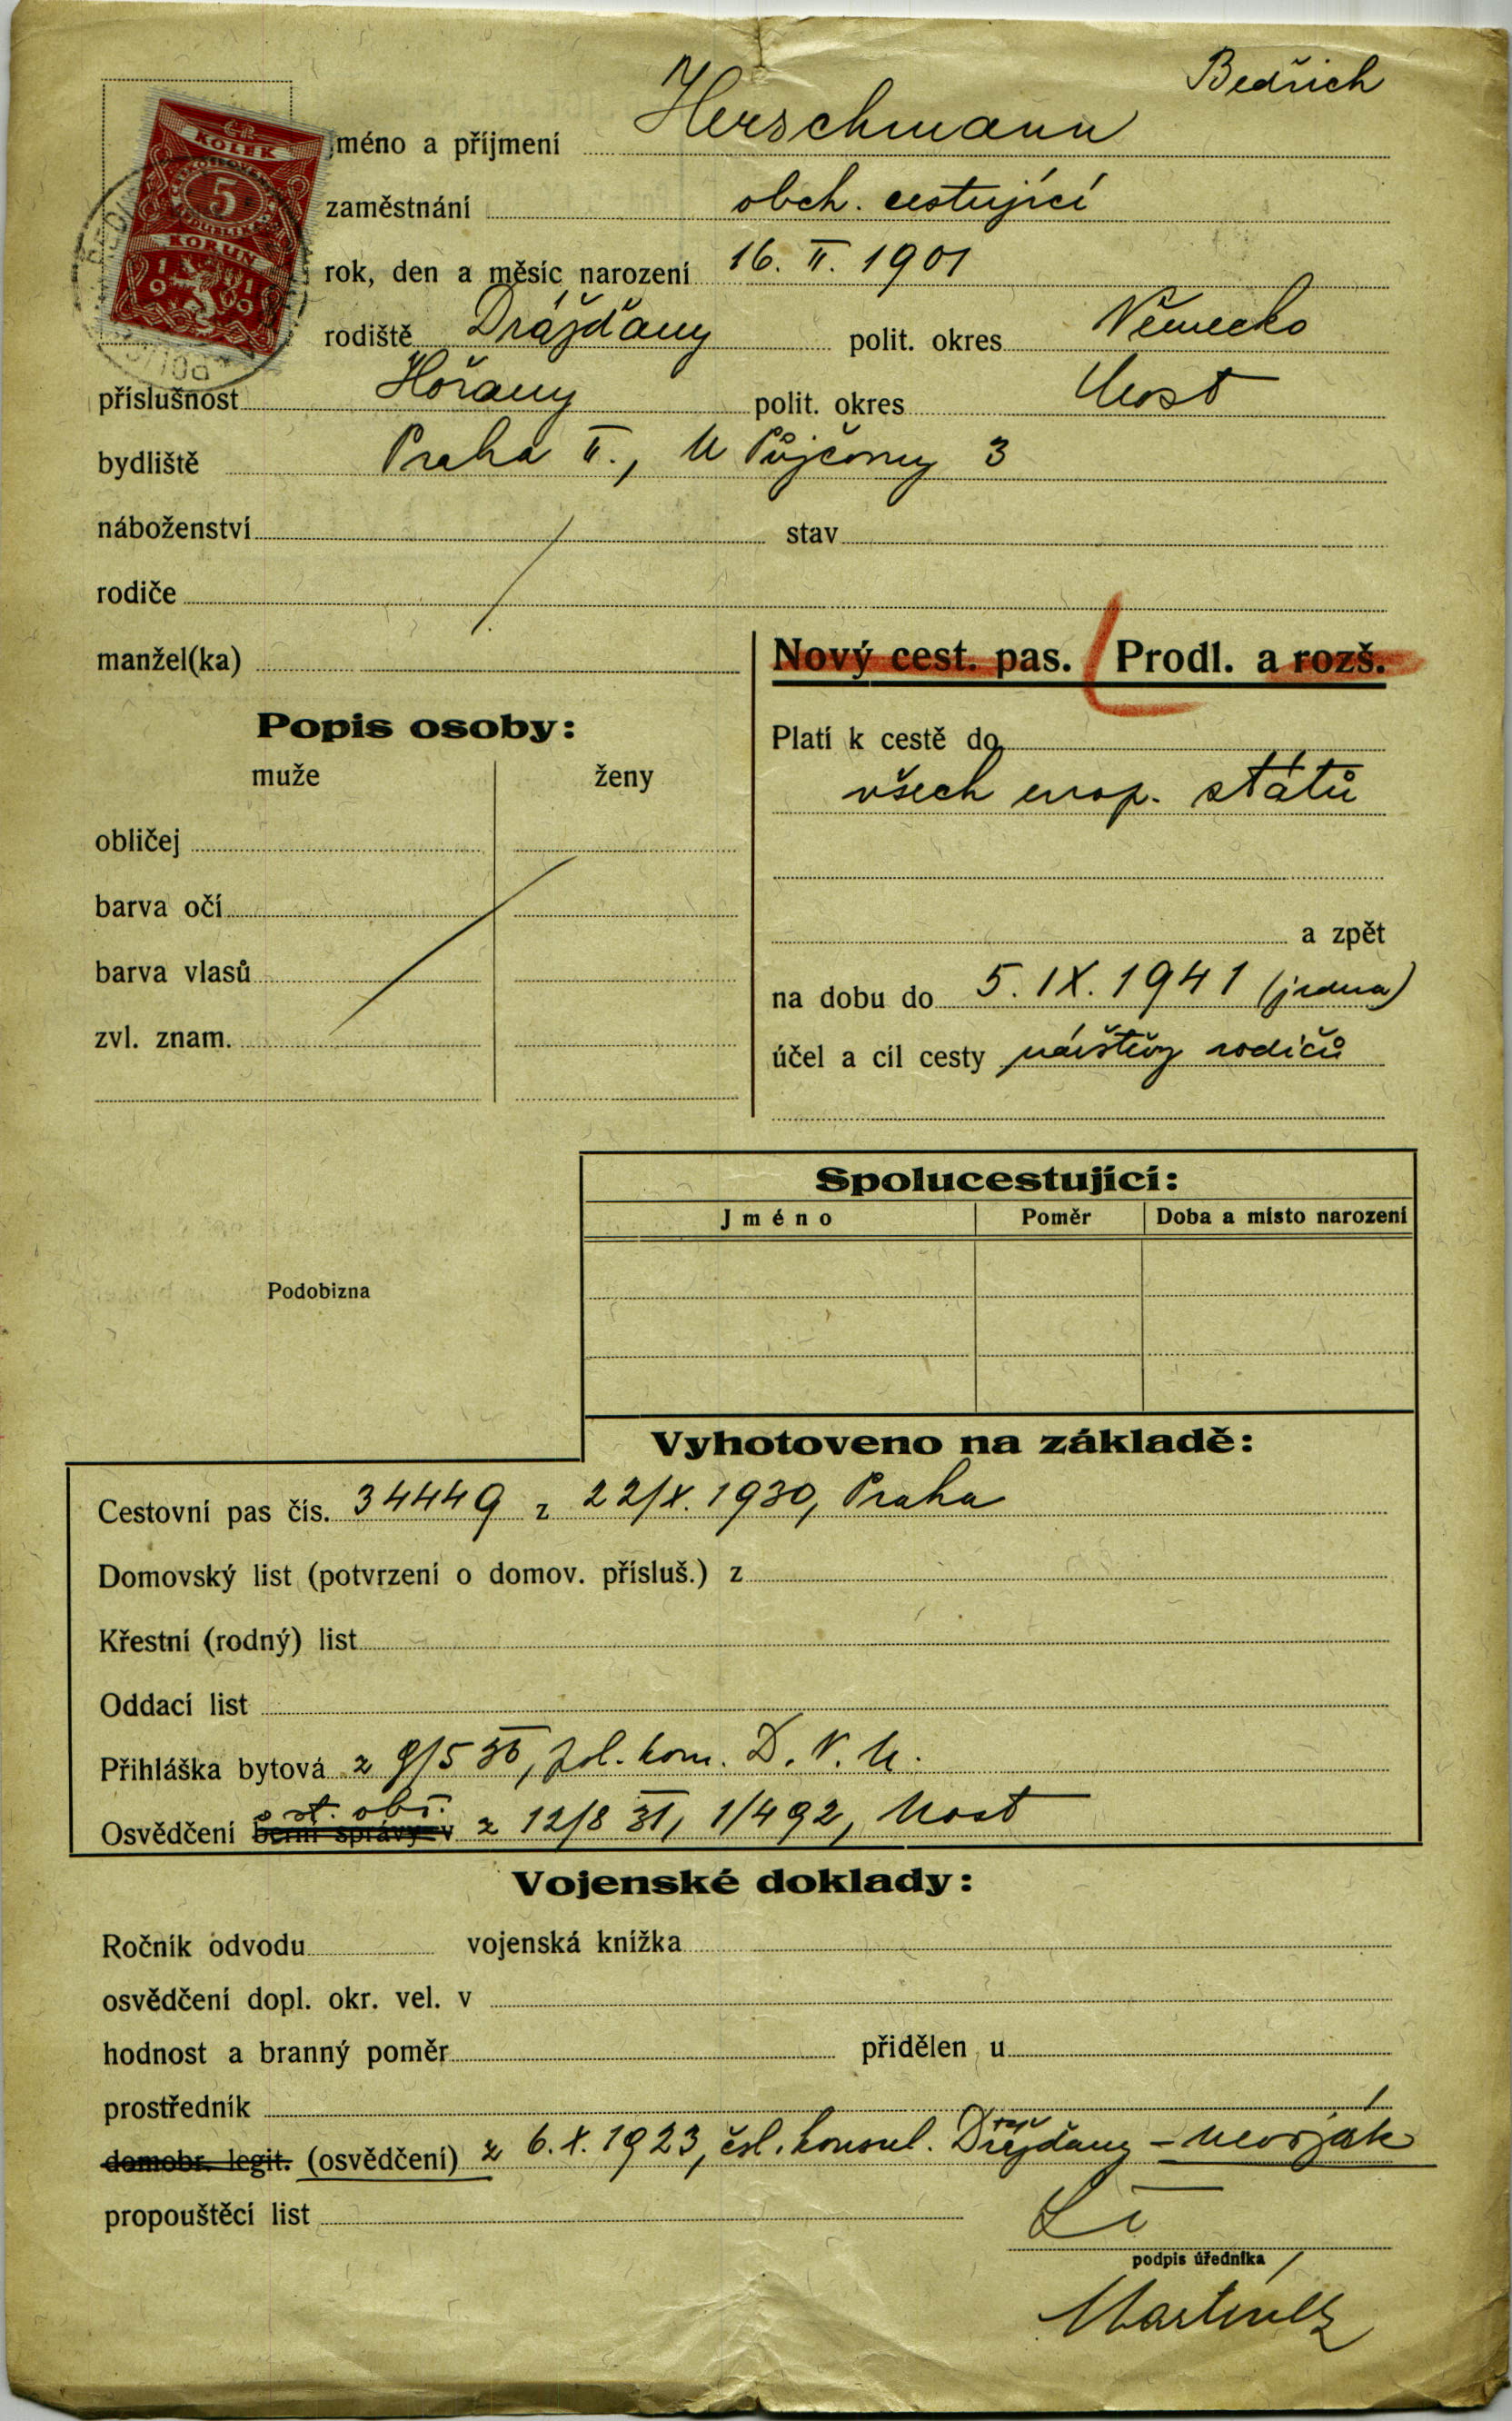 Bedřich
jméno a příjmení Herschmann
zaměstnání obch. cestující
rok, den a měsíc narození 16. II. 1901
rodiště Drážďany polit. okres Německo
příslušnost Hořany polit. okres Most
bydliště Praha II., U Půjčovny 3
náboženství stav
rodiče
manžel(ka)
KOLEK
5
KORUN
1919
Nový cest. pas. Prodl. a rozš.
Popis osoby:
muže ženy
obličej
barva očí
barva vlasů
zvl. znam.
Platí k cestě do
všech evrop. států
a zpět
na dobu do 5. IX. 1941 (jedna)
účel a cíl cesty návštěvy rodičů
Podobizna
Spolucestující:
Jméno Poměr Doba a místo narození
Vyhotoveno na základě:
Cestovní pas čís. 34449 z 22/X. 1930, Praha
Domovský list (potvrzení o domov. přísluš.) z
Křestní (rodný) list
Oddací list
Přihláška bytová z 9/5 36, pol. kom. D. V. U.
o st. obč.
Osvědčení berní správy v z 12/8 31, 1/492, Most
Vojenské doklady:
Ročník odvodu vojenská knížka
osvědčení dopl. okr. vel. v
hodnost a branný poměr přidělen u
prostředník
domobr. legit. (osvědčení) z 6. X. 1923, čsl. konsul. Drážďany - nevoják
propouštěcí list
podpis úředníka